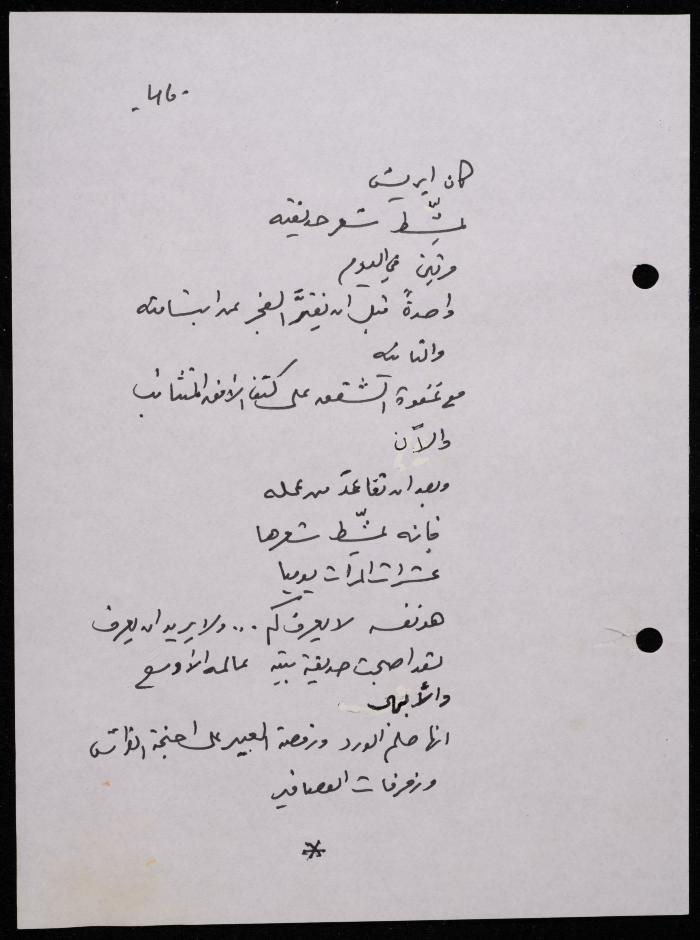 كان ايريش
يمشّط شعر حديقته
مرتين في اليوم
واحدةً قبل ان يفترَّ الفجر عن ابتسامته
والثانية
مع غفوة الشفق على كتف الافق المتثائب
والآن
وبعد ان تقاعد من عمله
فانه يمشّط شعرها
عشرات المرات يوميا
هو نفسه لا يعرف كم ... ولا يريد ان يعرف
لقد اصبحت حديقة بيته عالمه الأوسع
والأبهى
انها حلم الورد ورقصة العبير على اجنحة الفراش
وزقزقات العصافير
*